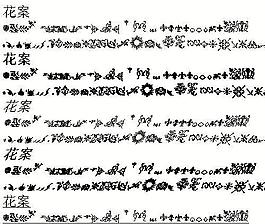 花案
花案
花案
花案
花案